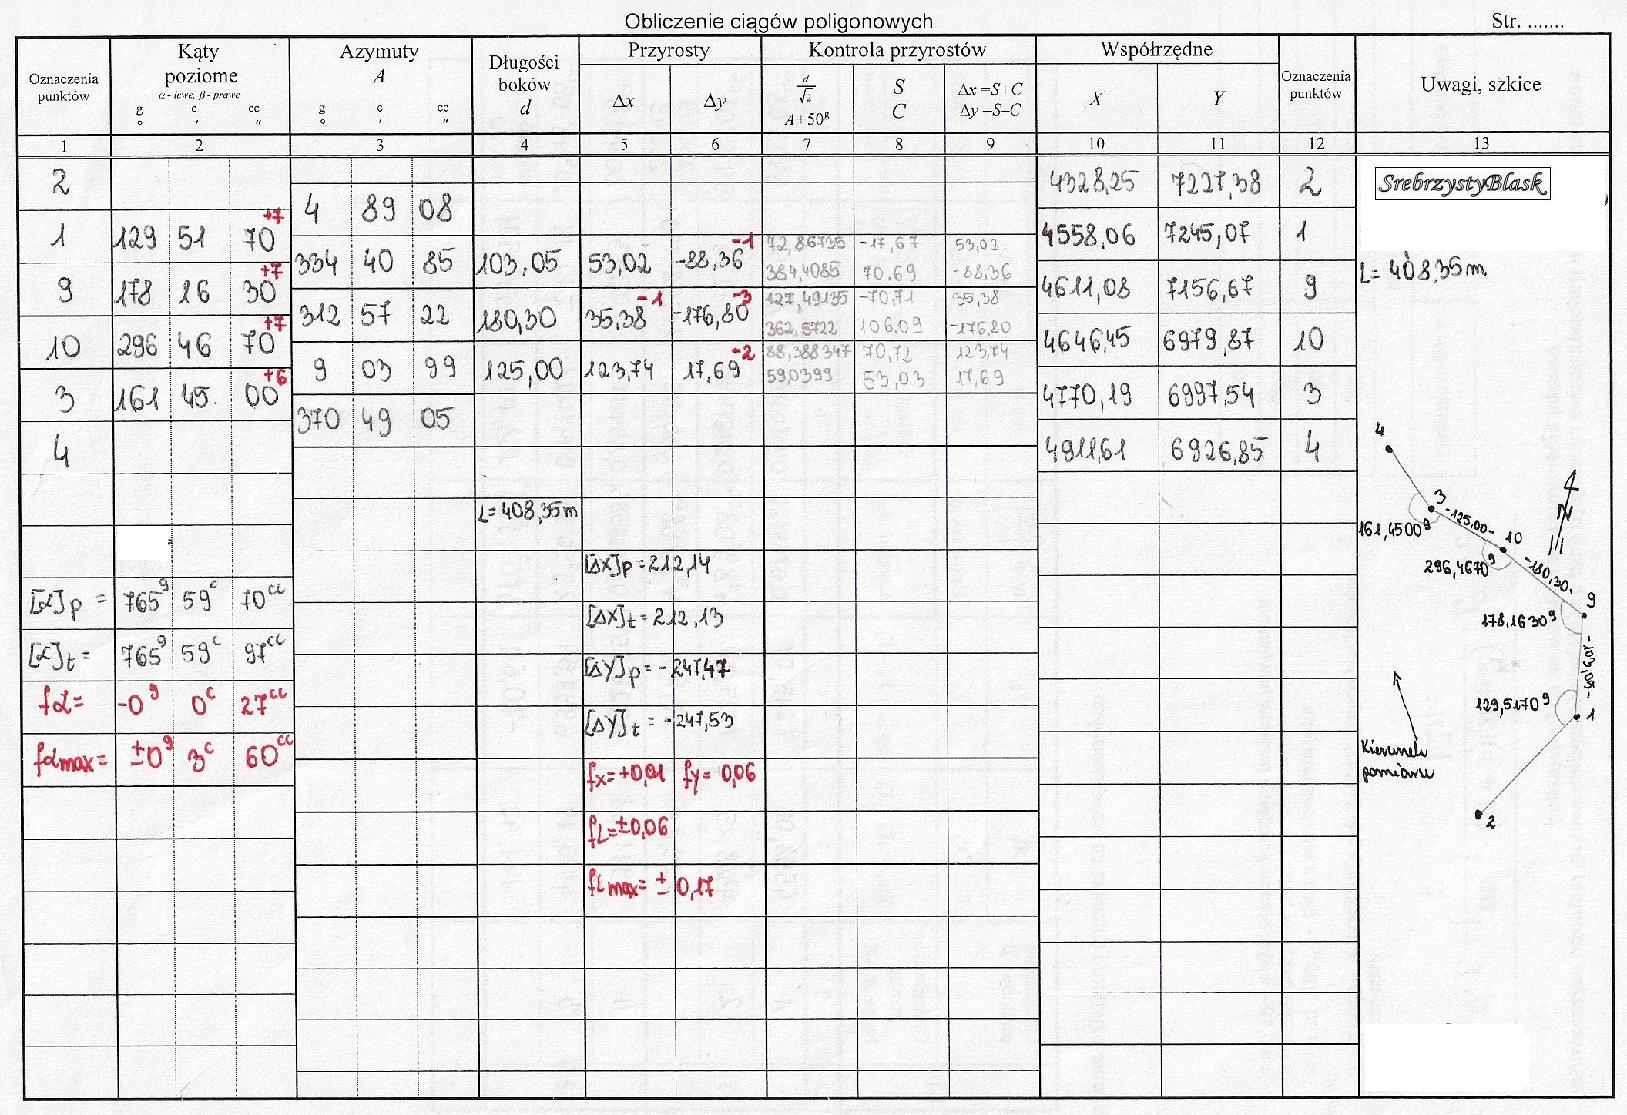 Obliczenie ciągów poligonowych Str. .......
Oznaczenia punktów
Kąty poziome
α - lewe, β - prawe
g c cc
o ' "
Azymuty
A
g c cc
o ' "
Długości boków
d
Przyrosty
Δx Δy
Kontrola przyrostów
d/√2
A+50g
S
C
Δx=S+C
Δy=S-C
Współrzędne
X Y
Oznaczenia punktów
Uwagi, szkice
1 2 3 4 5 6 7 8 9 10 11 12 13
2 4328,25 7227,38 2
SrebrzystyBlask
4 89 08
+7
1 129 51 70 4558,06 7245,07 1
-1
334 40 85 103,05 53,02 -88,36
72,86735 -17,67 53,02
384,4085 70.69 -88,36
L= 408,35m
+7
9 178 16 30 4611,08 7156,67 9
-1 -3
312 57 22 180,30 35,38 -176,80
127,49135 -70,71 35,38
362,5722 106.09 -176,80
+7
10 296 46 70 4646,45 6979,87 10
-2
9 03 99 125,00 123,74 17,69
88,388347 70,72 123,74
59,0399 53,03 17,69
+6
3 161 45. 00 4770,19 6997,54 3
370 49 05
4 4911,61 6926,85 4
L= 408,35m
[Δx]p = 212,14
[α]p = 765g 59c 70cc
[Δx]t = 212,13
[α]t = 765g 59c 97cc
[Δy]p = -247,47
fα= -0g 0c 27cc
[Δy]t = -247,53
fαmax= ±0g 3c 60cc
fx=+0,01 fy= 0,06
fL=±0,06
fLmax= ± 0,17
4
3
161,4500g
-125,00-
10
296,4670g
-180,30.
9
178,1630g
-103,05-
129,5170g
1
Kierunek
pomiaru
2
N